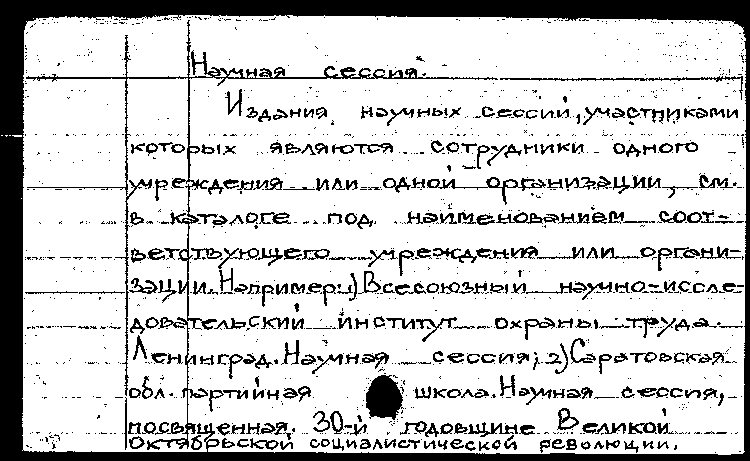 Научная сессия.
Издания научных сессий, участниками
которых являются сотрудники одного
учреждения или одной организации, см.
в каталоге под наименованием соот-
ветствующего учреждения или органи-
зации. Например: 1) Всесоюзный научно-иссле-
довательский институт охраны труда.
Ленинград. Научная сессия; 2) Саратовская
обл. партийная школа. Научная сессия,
посвященная 30-й годовщине Великой
Октябрьской социалистической революции.